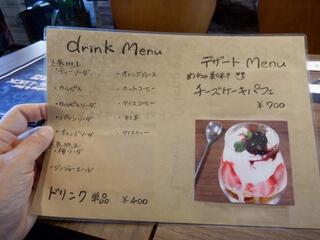 drink Menu
人気No.1
・ティーソーダ
・カルピス
・カルピスソーダ
・パインソーダ
・オレンジソーダ
人気No.2
・梅ソーダ
・ジンジャーエール
・オレンジジュース
・ホットコーヒー
・アイスコーヒー
・紅茶
・アイスティー
ドリンク 単品 ¥400
デザート Menu
チーズケーキパフェ
¥700